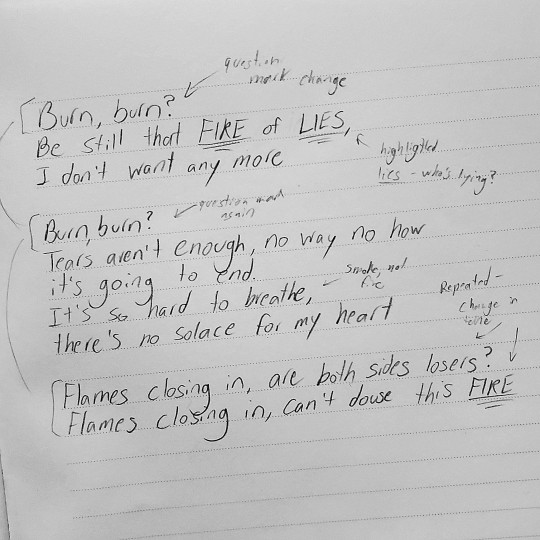 question
mark change
Burn, burn?
Be still that FIRE of LIES,
I don't want any more
highlighted
lies - who's lying?
Burn, burn?
question mark
again
Tears aren't enough, no way no how
it's going to end.
It's so hard to breathe,
smoke, not
fire
there's no solace for my heart
Repeated -
change in
tone
Flames closing in, are both sides losers?
Flames closing in, can't douse this FIRE